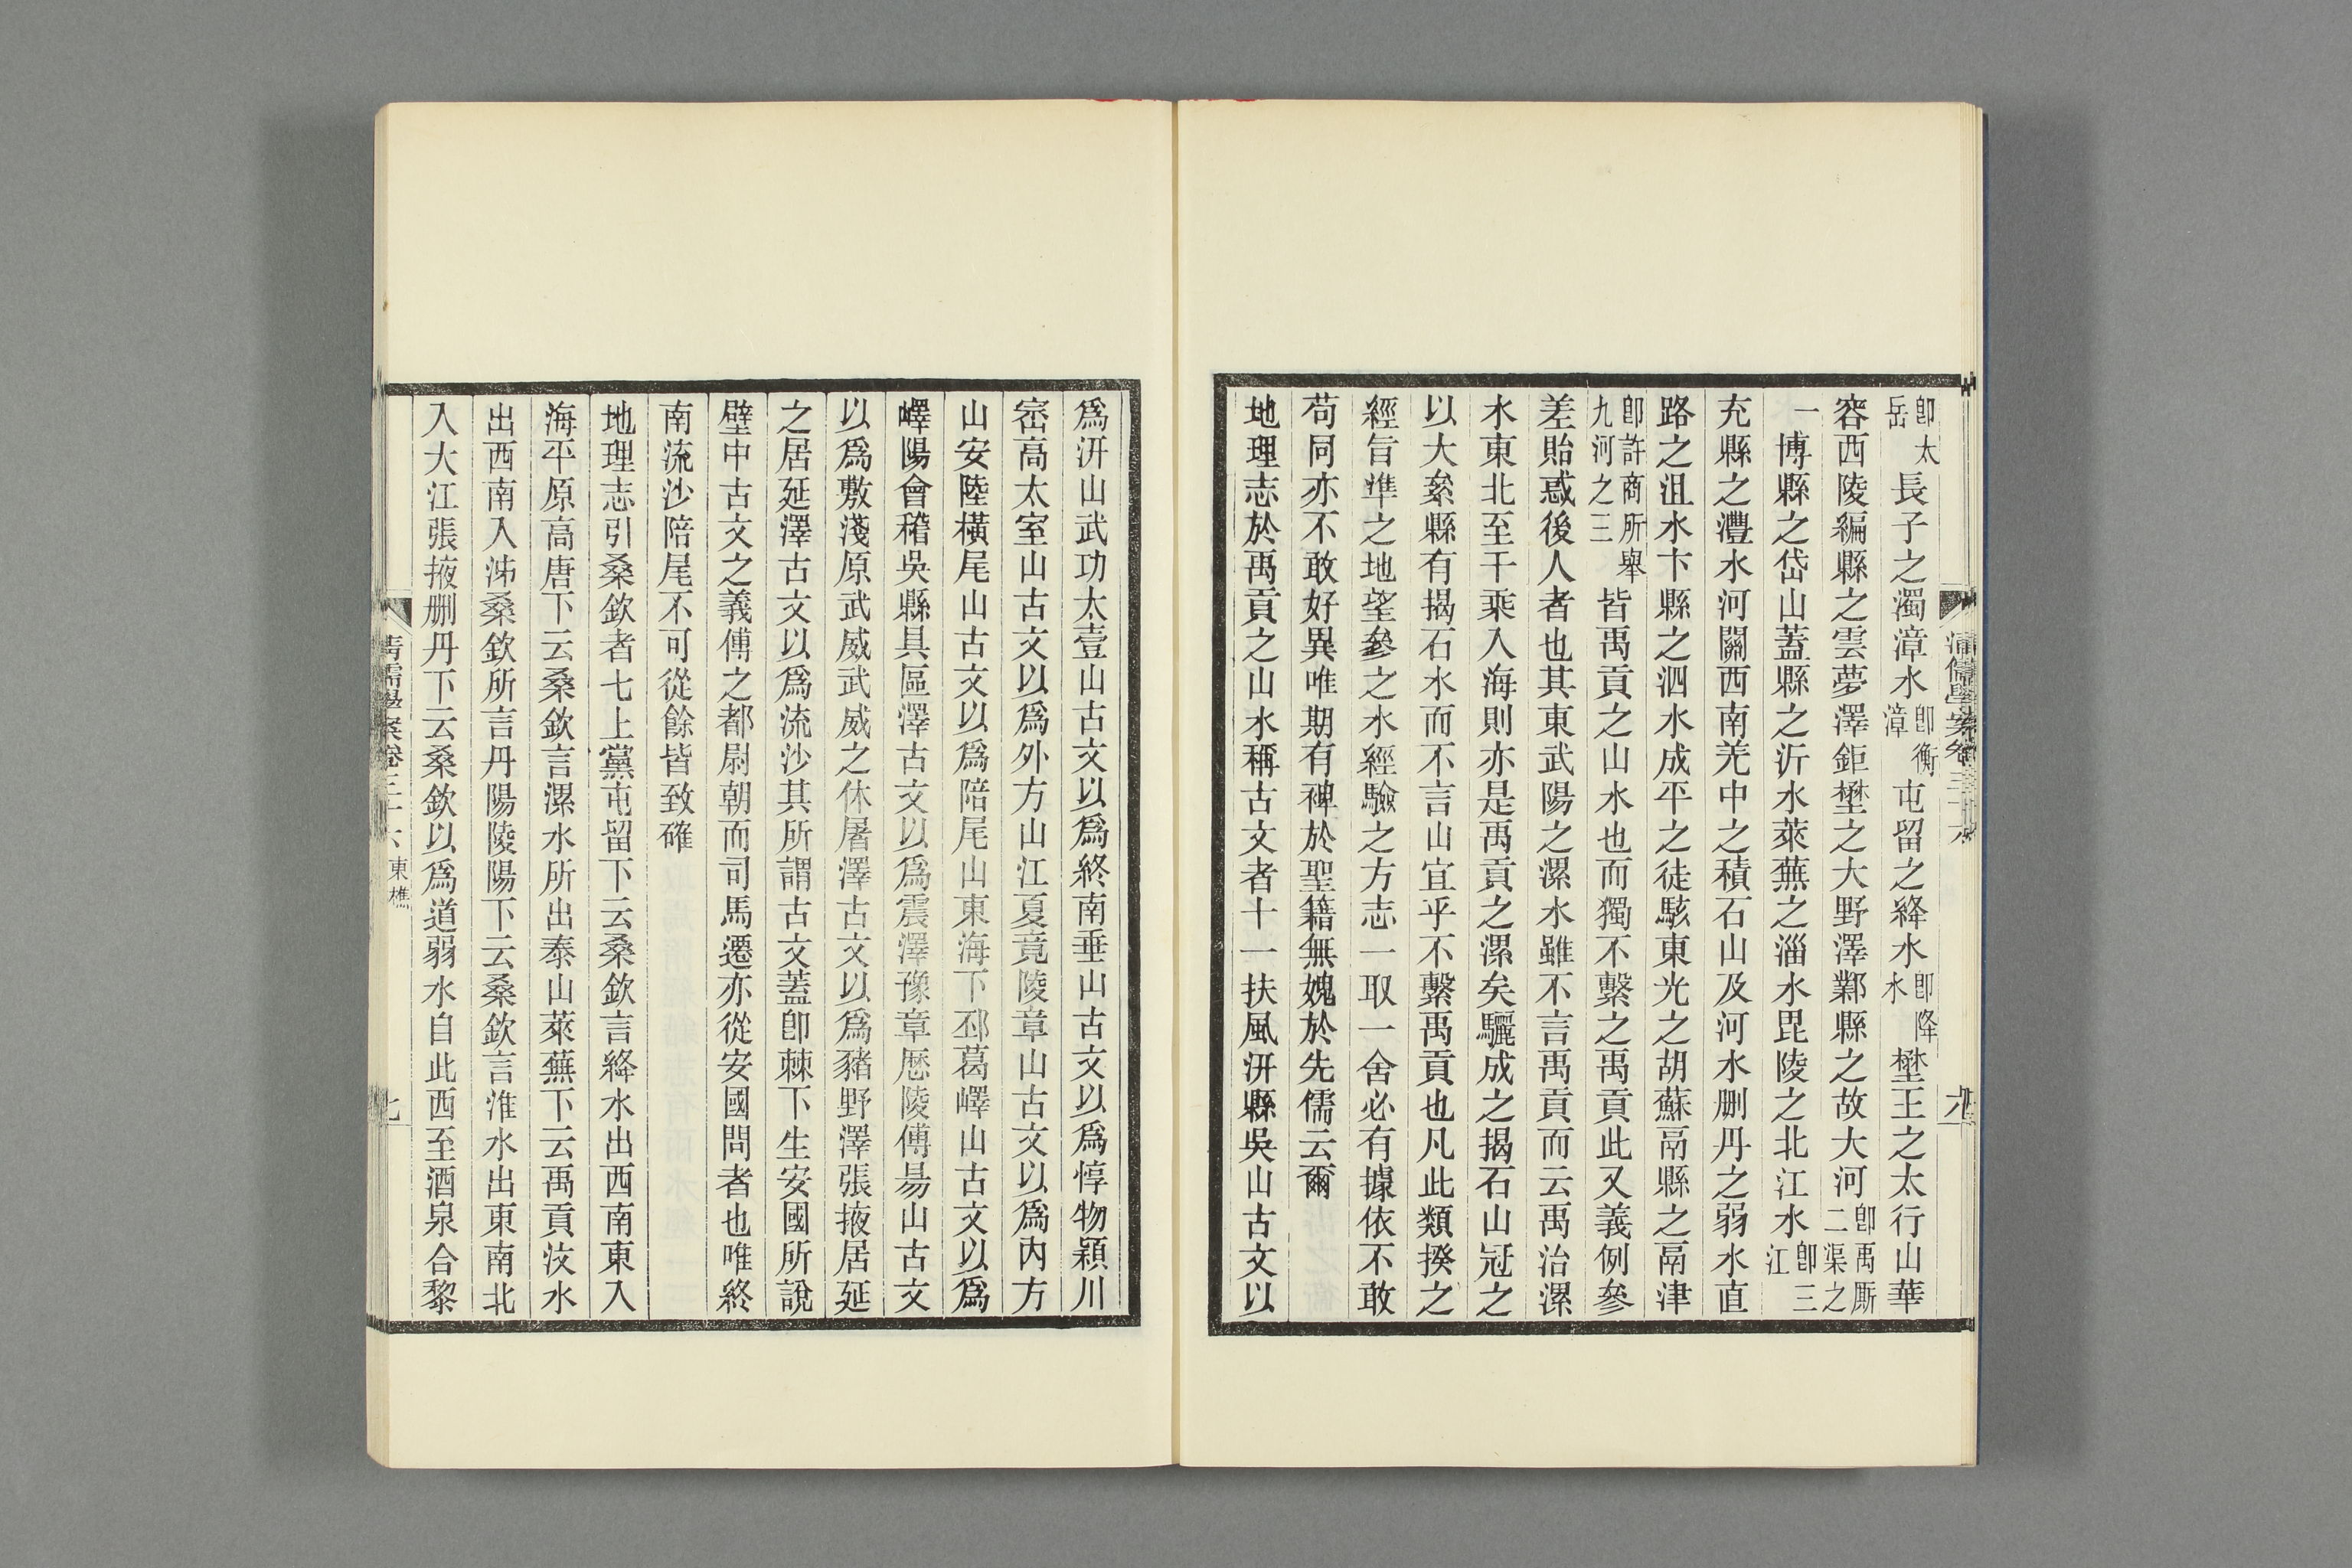 即太岳長子之濁漳水即衡漳屯留之絳水即降水壄王之太行山華
容西陵編縣之雲夢澤鉅壄之大野澤鄴縣之故大河即禹厮二渠之
一博縣之岱山蓋縣之沂水萊蕪之淄水毘陵之北江水即三江
充縣之灃水河關西南羌中之積石山及河水删丹之弱水直
路之沮水卞縣之泗水成平之徒駭東光之胡蘇鬲縣之鬲津
即許商所舉九河之三皆禹貢之山水也而獨不繫之禹貢此又義例參
差貽惑後人者也其東武陽之漯水雖不言禹貢而云禹治漯
水東北至千乘入海則亦是禹貢之漯矣驪成之揭石山冠之
以大絫縣有揭石水而不言山宜乎不繫禹貢也凡此類揆之
經旨準之地望參之水經驗之方志一取一舍必有據依不敢
苟同亦不敢好異唯期有裨於聖籍無媿於先儒云爾
地理志於禹貢之山水稱古文者十一扶風汧縣吳山古文以
爲汧山武功太壹山古文以爲終南垂山古文以爲惇物潁川
崈高太室山古文以爲外方山江夏竟陵章山古文以爲內方
山安陸橫尾山古文以爲陪尾山東海下邳葛嶧山古文以爲
嶧陽會稽吳縣具區澤古文以爲震澤豫章厯陵傅昜山古文
以爲敷淺原武威武威之休屠澤古文以爲豬野澤張掖居延
之居延澤古文以爲流沙其所謂古文蓋即棘下生安國所說
壁中古文之義傅之都尉朝而司馬遷亦從安國問者也唯終
南流沙陪尾不可從餘皆致確
地理志引桑欽者七上黨屯留下云桑欽言絳水出西南東入
海平原高唐下云桑欽言漯水所出泰山萊蕪下云禹貢汶水
出西南入泲桑欽所言丹陽陵陽下云桑欽言淮水出東南北
入大江張掖刪丹下云桑欽以爲道弱水自此西至酒泉合黎
清儒學案卷三十六 東樵 七